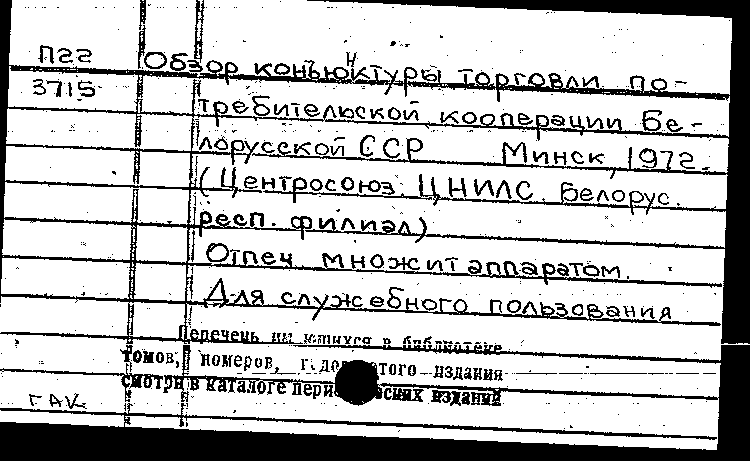 П22 Обзор конъюнктуры торговли по-
3715 требительской кооперации Бе-
лорусской ССР Минск, 1972.
(Центросоюз. ЦНИЛС. Белорус.
респ. филиал)
Отпеч множит аппаратом.
Для служебного пользования
Перечень в библиотеке
томов, номеров, издания
смотри в каталоге изданий
ГАК